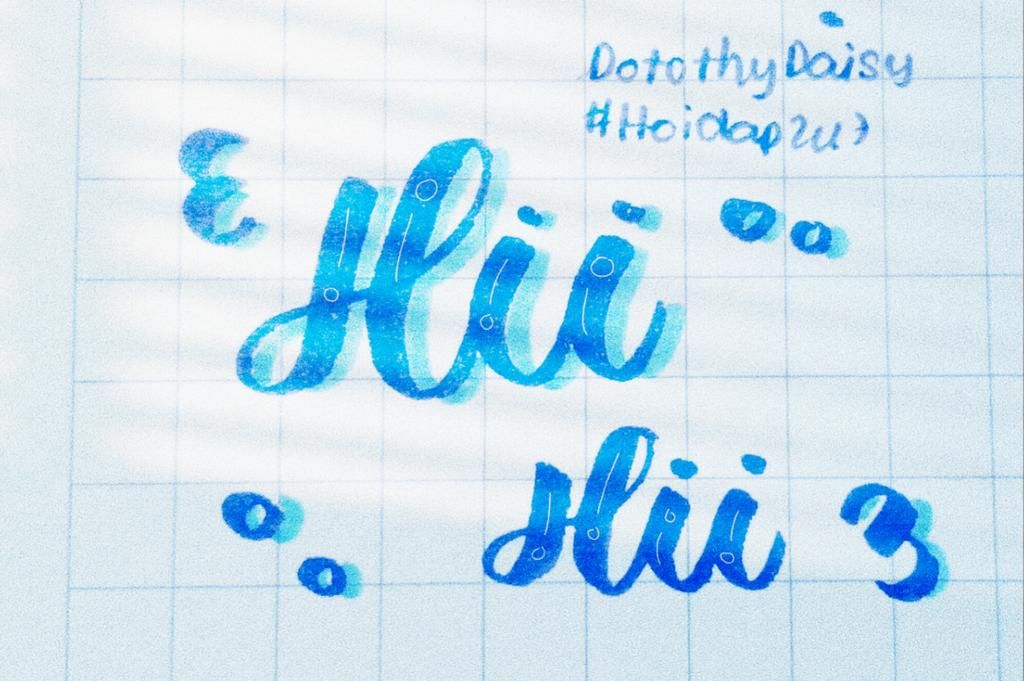 DotothyDaisy
#Hoidap247
ε Hii
Hii 3